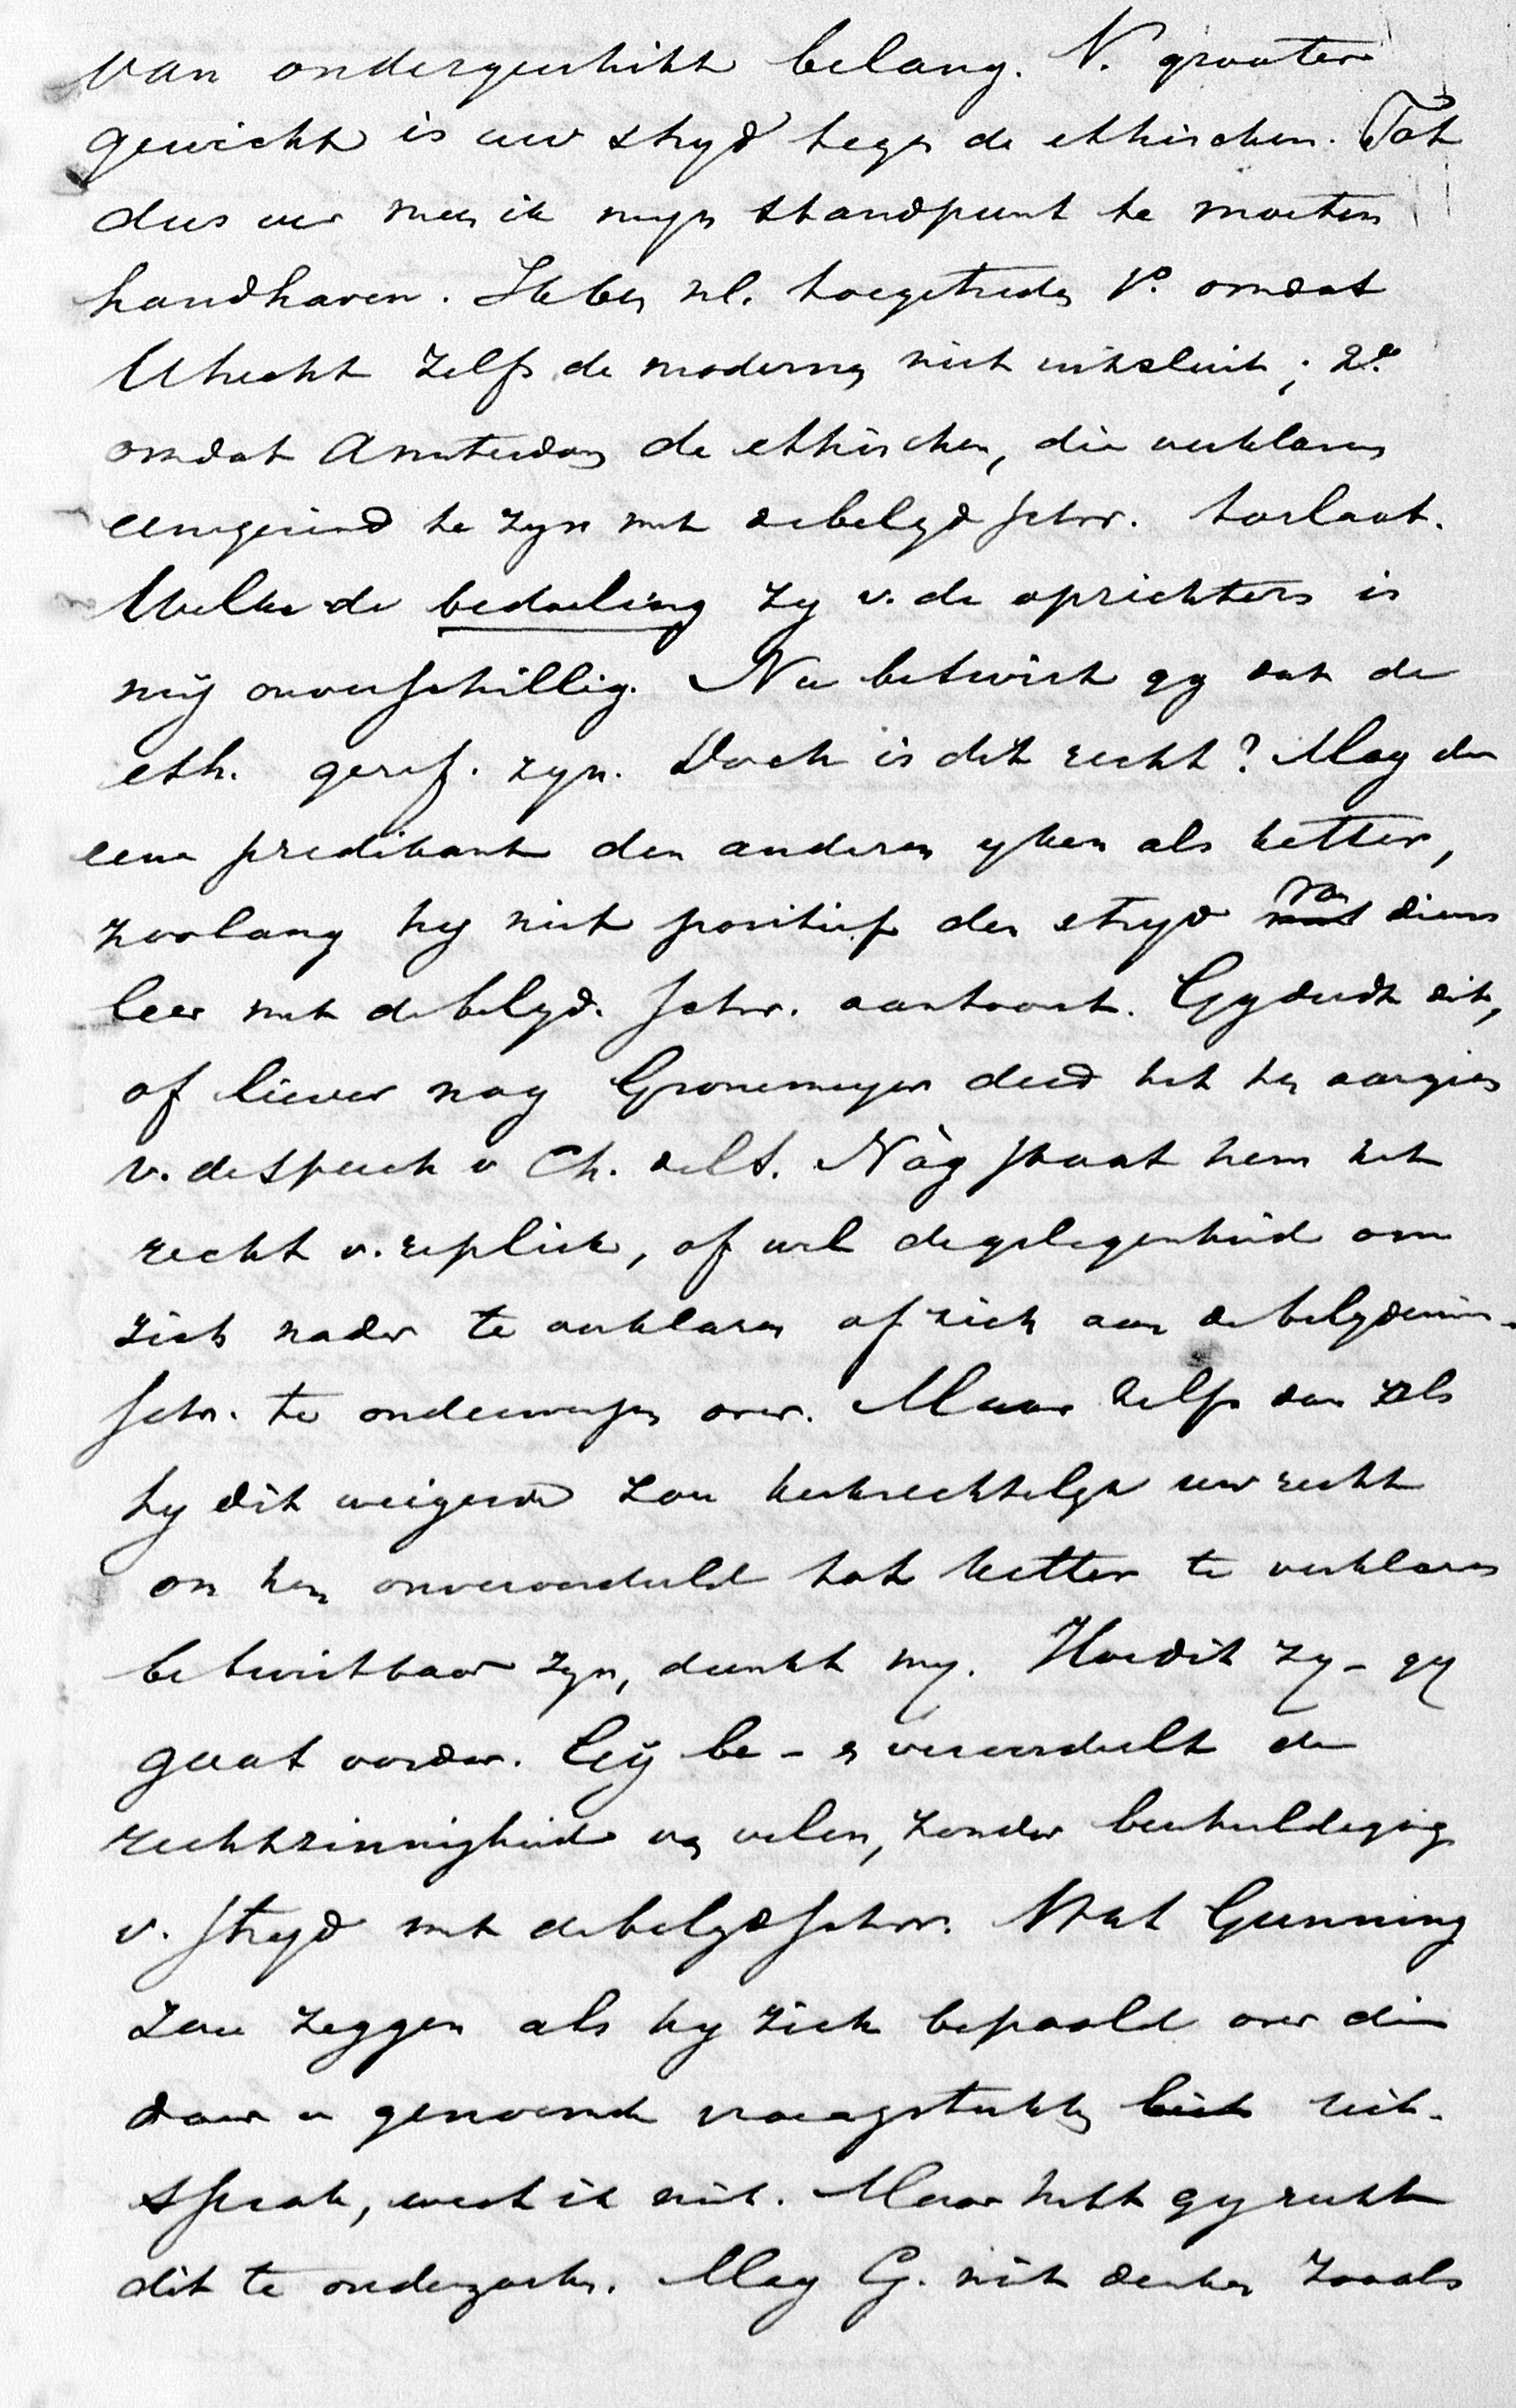 van ondergeschikt belang. V. grooter
gewicht is uw stryd tegen de ethischen. Tot
dus ver meen ik mijn standpunt te moeten
handhaven. Ik ben nl. toegetreden 1o. omdat
Utrecht zelfs de modernen niet uitsluit; 2o.
omdat Amsterdam de ethischen, die verklaren
eensgezind te zyn met de belyd schr. toelaat.
Welke de bedoeling zy v. de oprichters is
mij onverschillig. Nu betwist gy dat de
eth. geref. zyn. Doch is dit recht? Mag de
eene predikant den anderen yken als ketter,
zoolang hy niet positief den stryd van diens
leer met de belyd. schr. aantoont. Gy deedt dit,
of liever nog Gronemeyer deed het ten aanzien
v. de speech v Ch. dels. Nòg staat hem het
recht v. repliek, of wel de gelegenheid om
zich nader te verklaren of zich aan de belydenis-
schr. te onderwerpen over. Maar zelfs dan als
hy dit weigerde zou kerkrechtelyk uw recht
om hem onveroordeeld tot ketter te verklaren
betwistbaar zyn, dunkt my. Hoe dit zy - gy
gaat verder. Gij be- en veroordeelt de
rechtzinnigheid van velen, zonder beschuldiging
v. stryd met de belydschr. Wat Gunning
zou zeggen als hy zich bepaald over die
door u genoemde vraagstukken uit-
sprak, weet ik niet. Maar hebt gy recht
dit te onderzoeken. Mag G. niet denken zooals